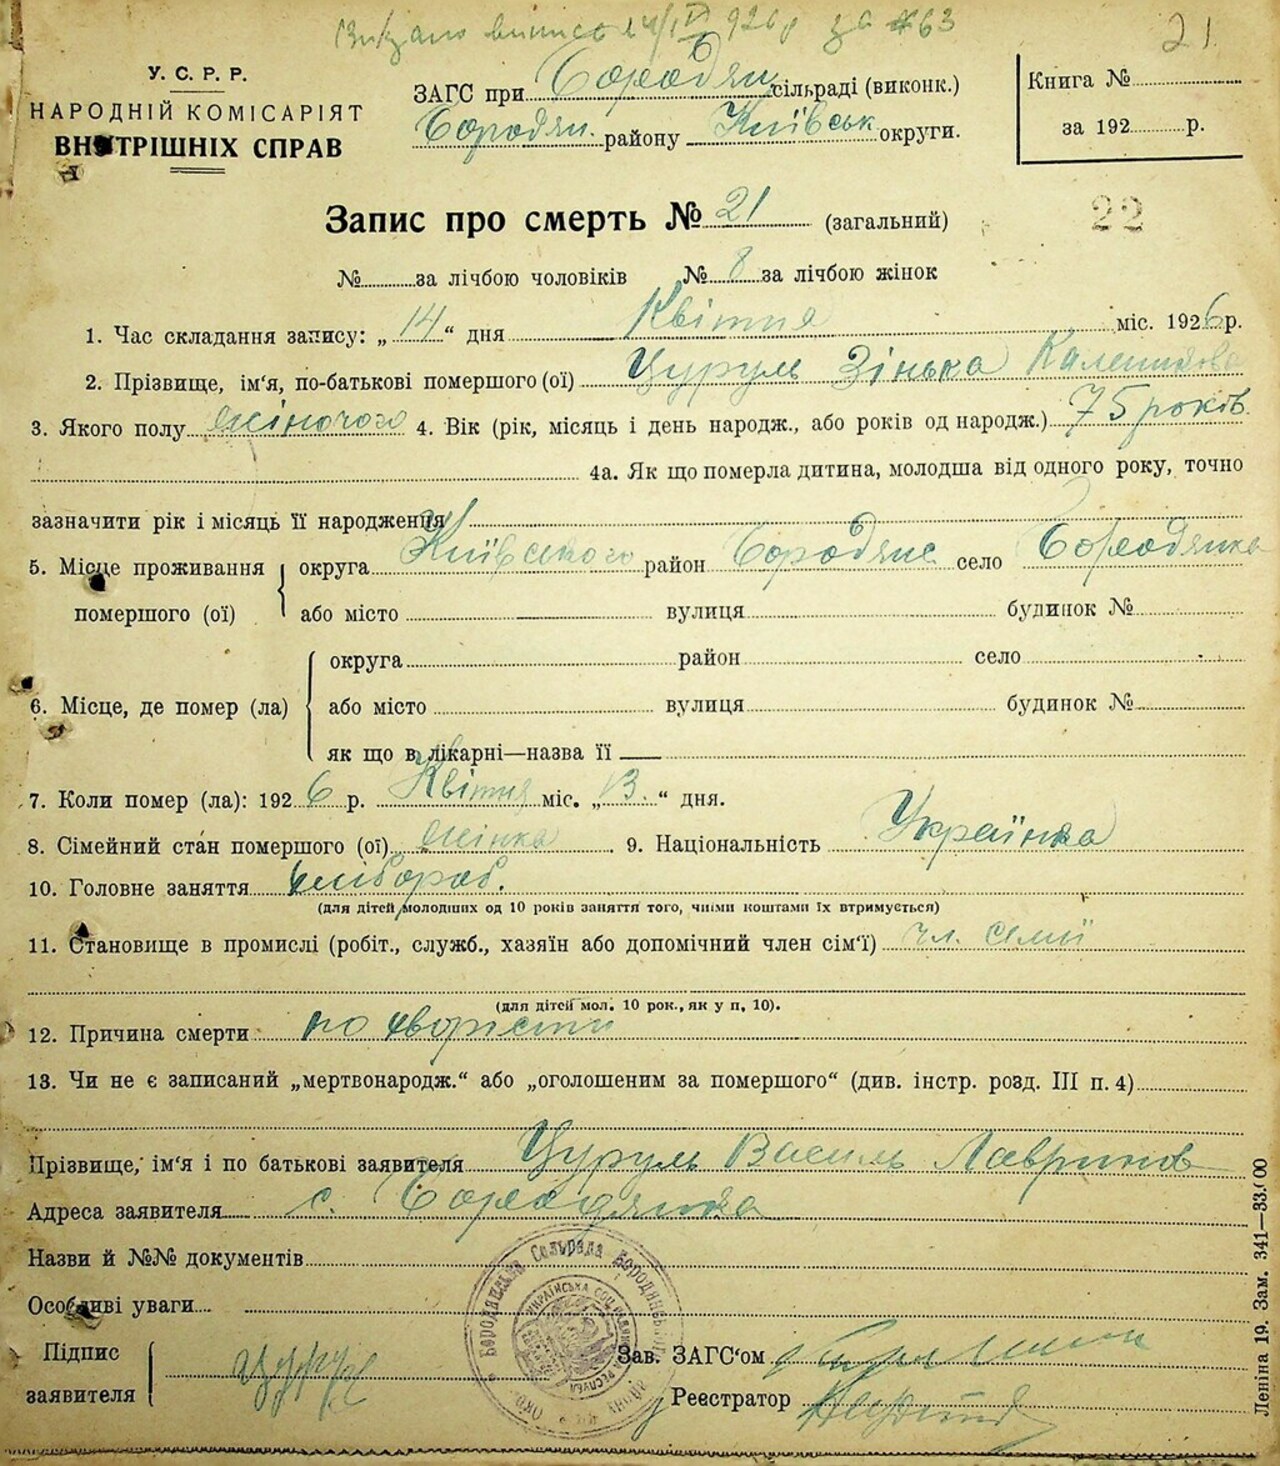 Видано випис 14/IV 1926 р за №63
21
У. С. Р. Р.
НАРОДНІЙ КОМІСАРІЯТ
ВНУТРІШНІХ СПРАВ
ЗАГС при Бородян сільраді (виконк.)
Бородян. району Київськ округи.
Книга №
за 192 р.
Запис про смерть № 21 (загальний)
22
№ за лічбою чоловіків № 8 за лічбою жінок
1. Час складання запису: „14“ дня Квітня міс. 1926 р.
2. Прізвище, ім'я, по-батькові помершого (ої) Цуруль Зінька
3. Якого полу жіночого 4. Вік (рік, місяць і день народж., або років од народж.) 75 років.
4а. Як що померла дитина, молодша від одного року, точно
зазначити рік і місяць її народження
5. Місце проживання помершого (ої) округа Київського район Бородянс село Бородянка
або місто вулиця будинок №
6. Місце, де помер (ла) округа район село
або місто вулиця будинок №
як що в лікарні—назва її
7. Коли помер (ла): 1926 р. Квітня міс. „13.“ дня.
8. Сімейний стан помершого (ої) жінка 9. Національність Українка
10. Головне заняття хлібороб.
(для дітей молодших од 10 років заняття того, чиїми коштами їх втримується)
11. Становище в промислі (робіт., служб., хазяїн або допомічний член сім'ї) чл. семії
(для дітей мол. 10 рок., як у п. 10).
12. Причина смерти по хворісти
13. Чи не є записаний „мертвонародж.“ або „оголошеним за помершого“ (див. інстр. розд. III п. 4)
Прізвище, ім'я і по батькові заявителя Цуруль Василь Лавринов
Адреса заявителя с. Бородянка
Назви й №№ документів
Особливі уваги
Підпис заявителя Цурул
Зав. ЗАГС'ом
Реєстратор
Бородянська Сельрада Бородянськ району
УКРАЇНСЬКА СОЦ
Леніна 19. Зам. 341—33.000